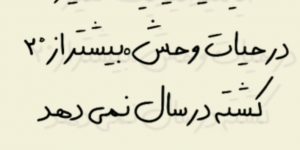 در حیات وحش، بیشتر از ۲۰
کشته در سال نمی دهد